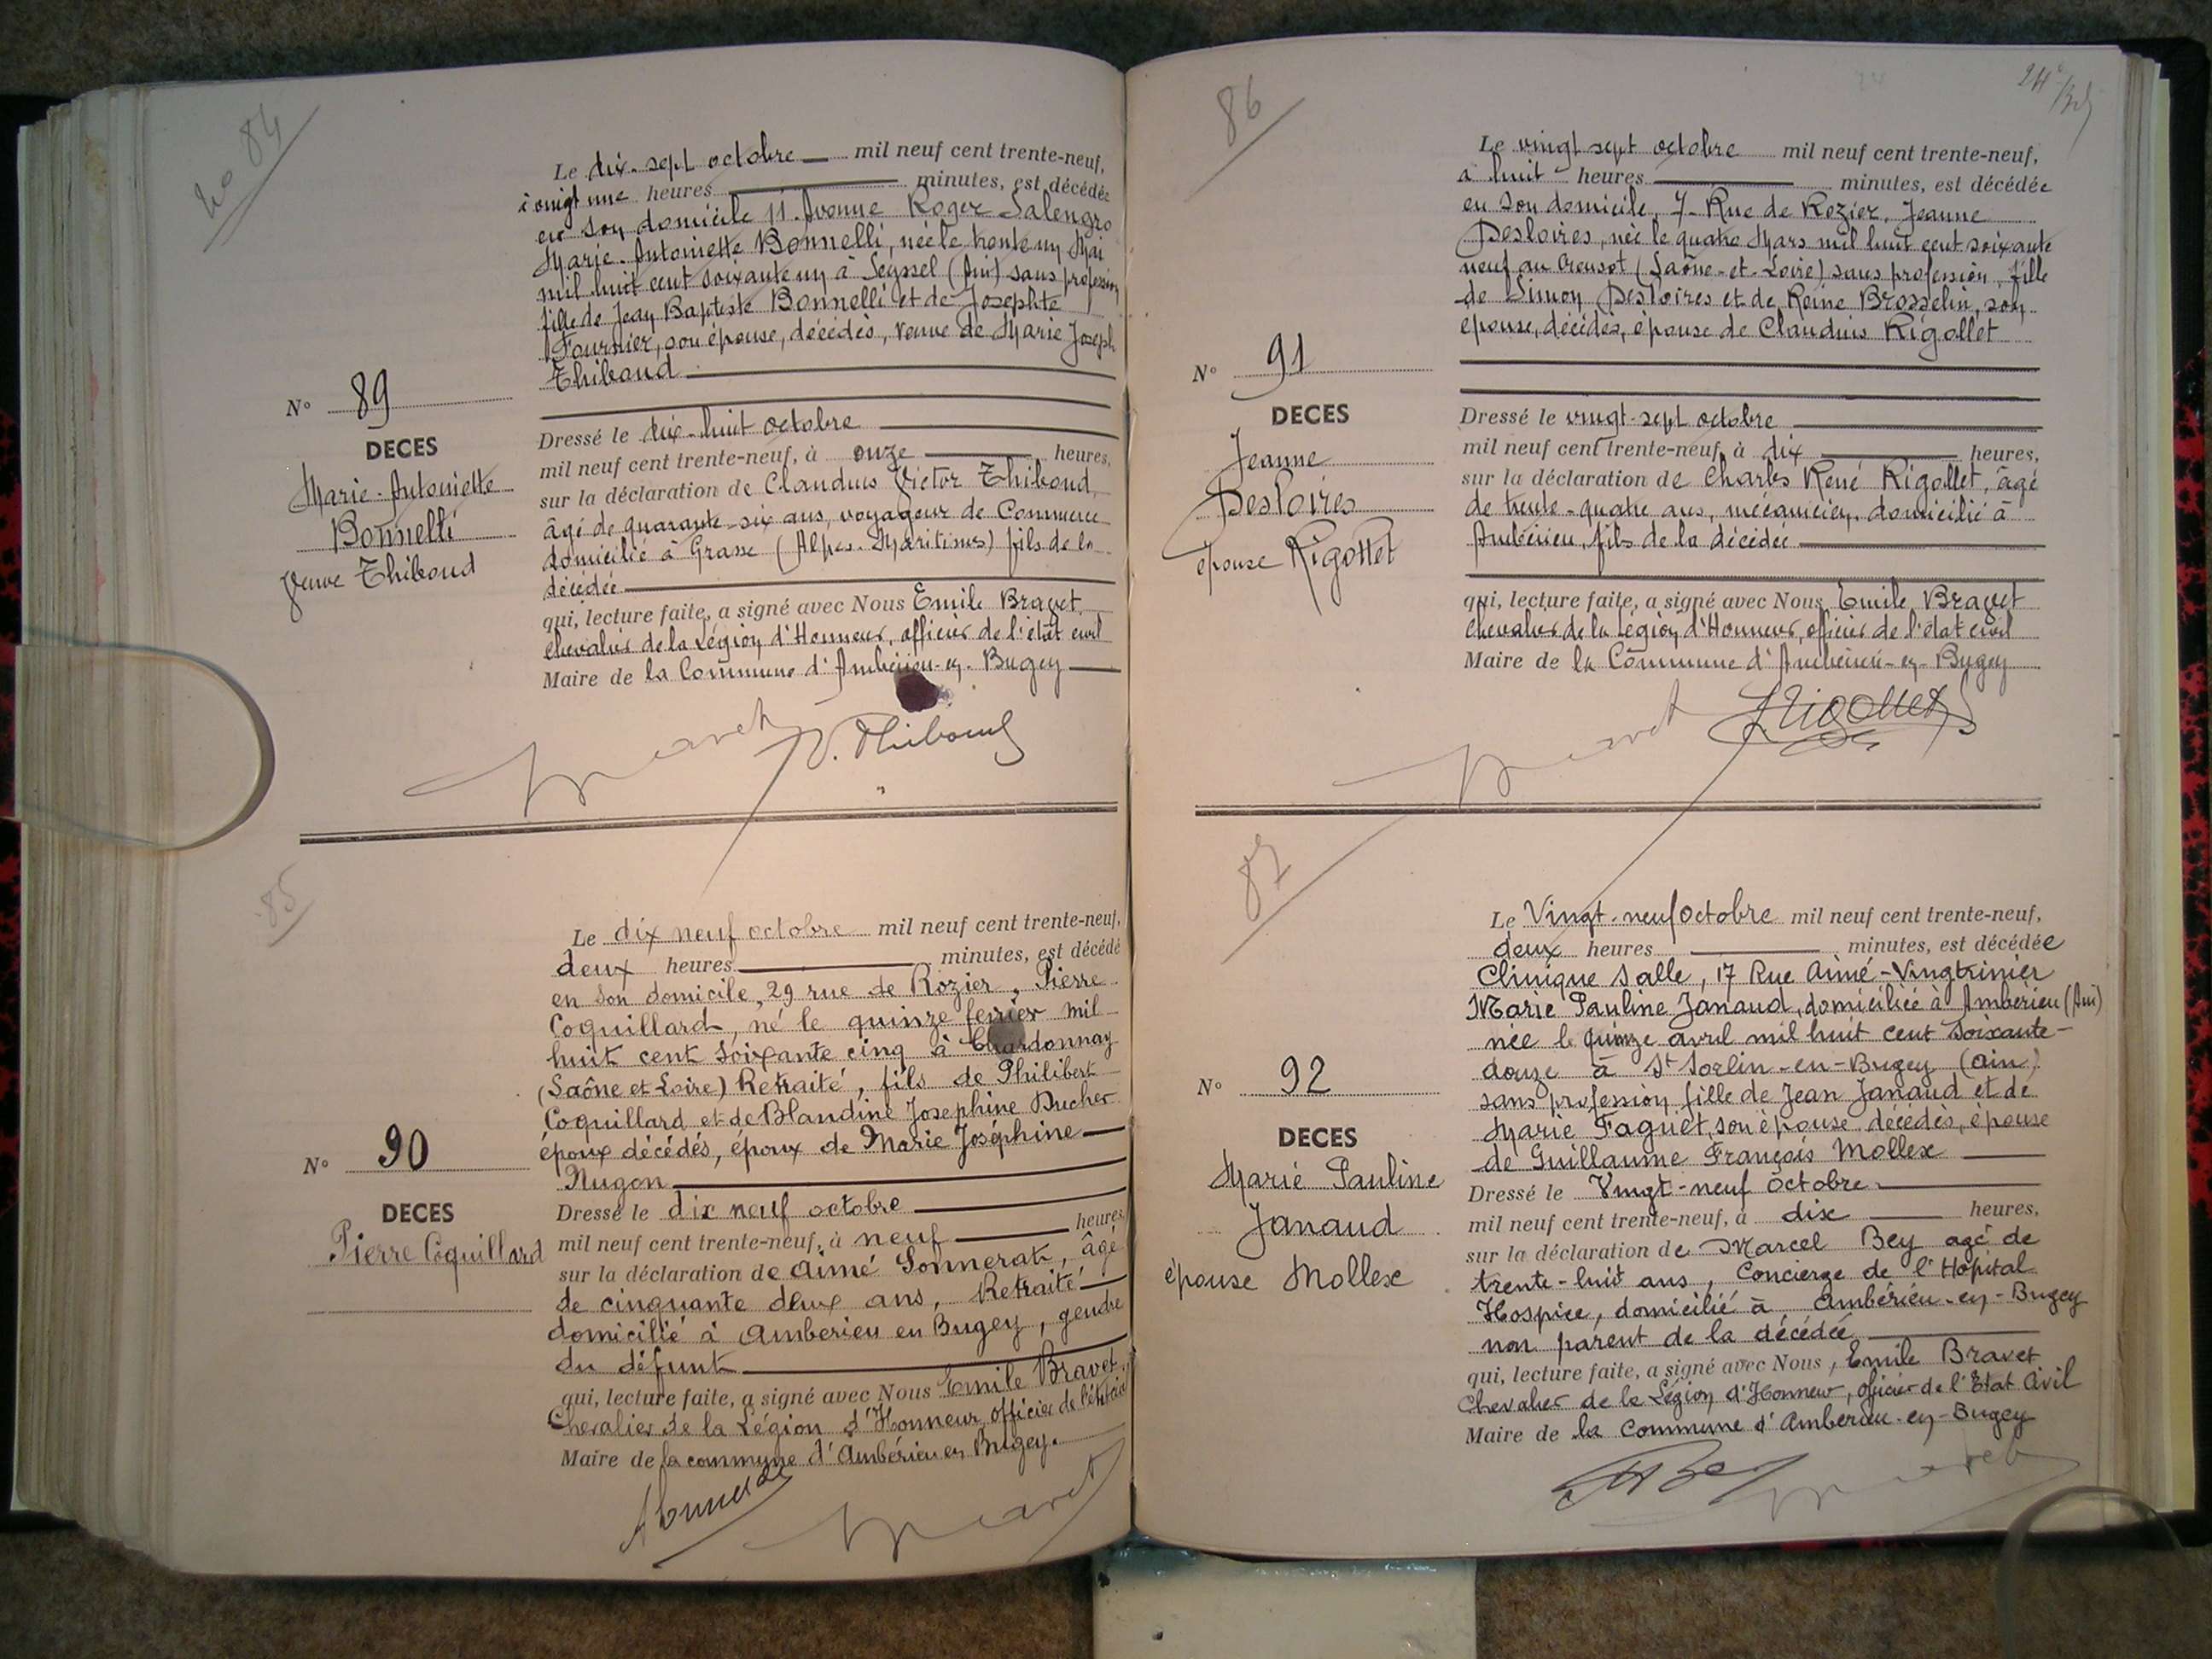 No 84
Le dix-sept octobre mil neuf cent trente-neuf,
à vingt une heures minutes, est décédée
en son domicile 11 Avenue Roger Salengro
Marie-Antoinette Bonnelli, née le trente un Mai
mil huit cent soixante un à Seyssel (Ain) sans profession
fille de Jean Baptiste Bonnelli et de Josephte
Fournier, son épouse, décédés, veuve de Marie Joseph
Thiboud
N° 89
DECES
Marie-Antoinette
Bonnelli
Veuve Thiboud
Dressé le dix-huit octobre
mil neuf cent trente-neuf, à onze heures,
sur la déclaration de Claudius Victor Thiboud,
âgé de quarante-six ans, voyageur de Commerce
domicilié à Grasse (Alpes-Maritimes) fils de la
décédée
qui, lecture faite, a signé avec Nous Emile Bravet
Chevalier de la Légion d'Honneur, officier de l'état civil
Maire de la Commune d'Ambérieu-en-Bugey
Bravet V. Thiboud
85
Le dix neuf octobre mil neuf cent trente-neuf,
deux heures minutes, est décédé
en son domicile, 29 rue de Rozier, Pierre
Coquillard, né le quinze fevrier mil
huit cent soixante cinq à Chardonnay
(Saône et Loire) Retraité, fils de Philibert
Coquillard et de Blandine Josephine Ducher
époux décédés, époux de Marie Joséphine
Nugon
N° 90
DECES
Pierre Coquillard
Dressé le dix neuf octobre
mil neuf cent trente-neuf, à neuf heures,
sur la déclaration de Aimé Sonnerat, âgé
de cinquante deux ans, Retraité
domicilié à Amberieu en Bugey, gendre
du défunt
qui, lecture faite, a signé avec Nous Emile Bravet,
Chevalier de la Légion d'Honneur, officier de l'état civil
Maire de la commune d'Ambérieu en Bugey.
Bravet
86
Le vingt sept octobre mil neuf cent trente-neuf,
à huit heures minutes, est décédée
en son domicile, 7 Rue de Rozier, Jeanne
Desloires, née le quatre Mars mil huit cent soixante
neuf au Creusot (Saône-et-Loire) sans profession, fille
de Simon Desloires et de Reine Brosselin, son
épouse, décédés, épouse de Claudius Rigollet
N° 91
DECES
Jeanne
Desloires
épouse Rigollet
Dressé le vingt-sept octobre
mil neuf cent trente-neuf, à dix heures,
sur la déclaration de Charles René Rigollet, âgé
de trente-quatre ans, mécanicien, domicilié à
Ambérieu, fils de la décédée
qui, lecture faite, a signé avec Nous Emile Bravet
Chevalier de la Légion d'Honneur, officier de l'état civil
Maire de la Commune d'Ambérieu-en-Bugey
Bravet Rigollet
87
Le Vingt-neuf Octobre mil neuf cent trente-neuf,
deux heures minutes, est décédée
Clinique Salle, 17 Rue Aimé-Vingtrinier
Marie Pauline Janaud, domiciliée à Ambérieu (Ain)
née le quinze avril mil huit cent soixante-
douze à St Sorlin-en-Bugey (Ain)
sans profession fille de Jean Janaud et de
Marie Faguet, son épouse décédés, épouse
de Guillaume François Mollex
N° 92
DECES
Marie Pauline
Janaud
épouse Mollex
Dressé le Vingt-neuf Octobre
mil neuf cent trente-neuf, à dix heures,
sur la déclaration de Marcel Bey agé de
trente-huit ans, Concierge de l'Hôpital
Hospice, domicilié à Ambérieu-en-Bugey
non parent de la décédée
qui, lecture faite, a signé avec Nous, Emile Bravet
Chevalier de la Légion d'Honneur, Officier de l'Etat Civil
Maire de la Commune d'Ambérieu-en-Bugey
Bey Bravet